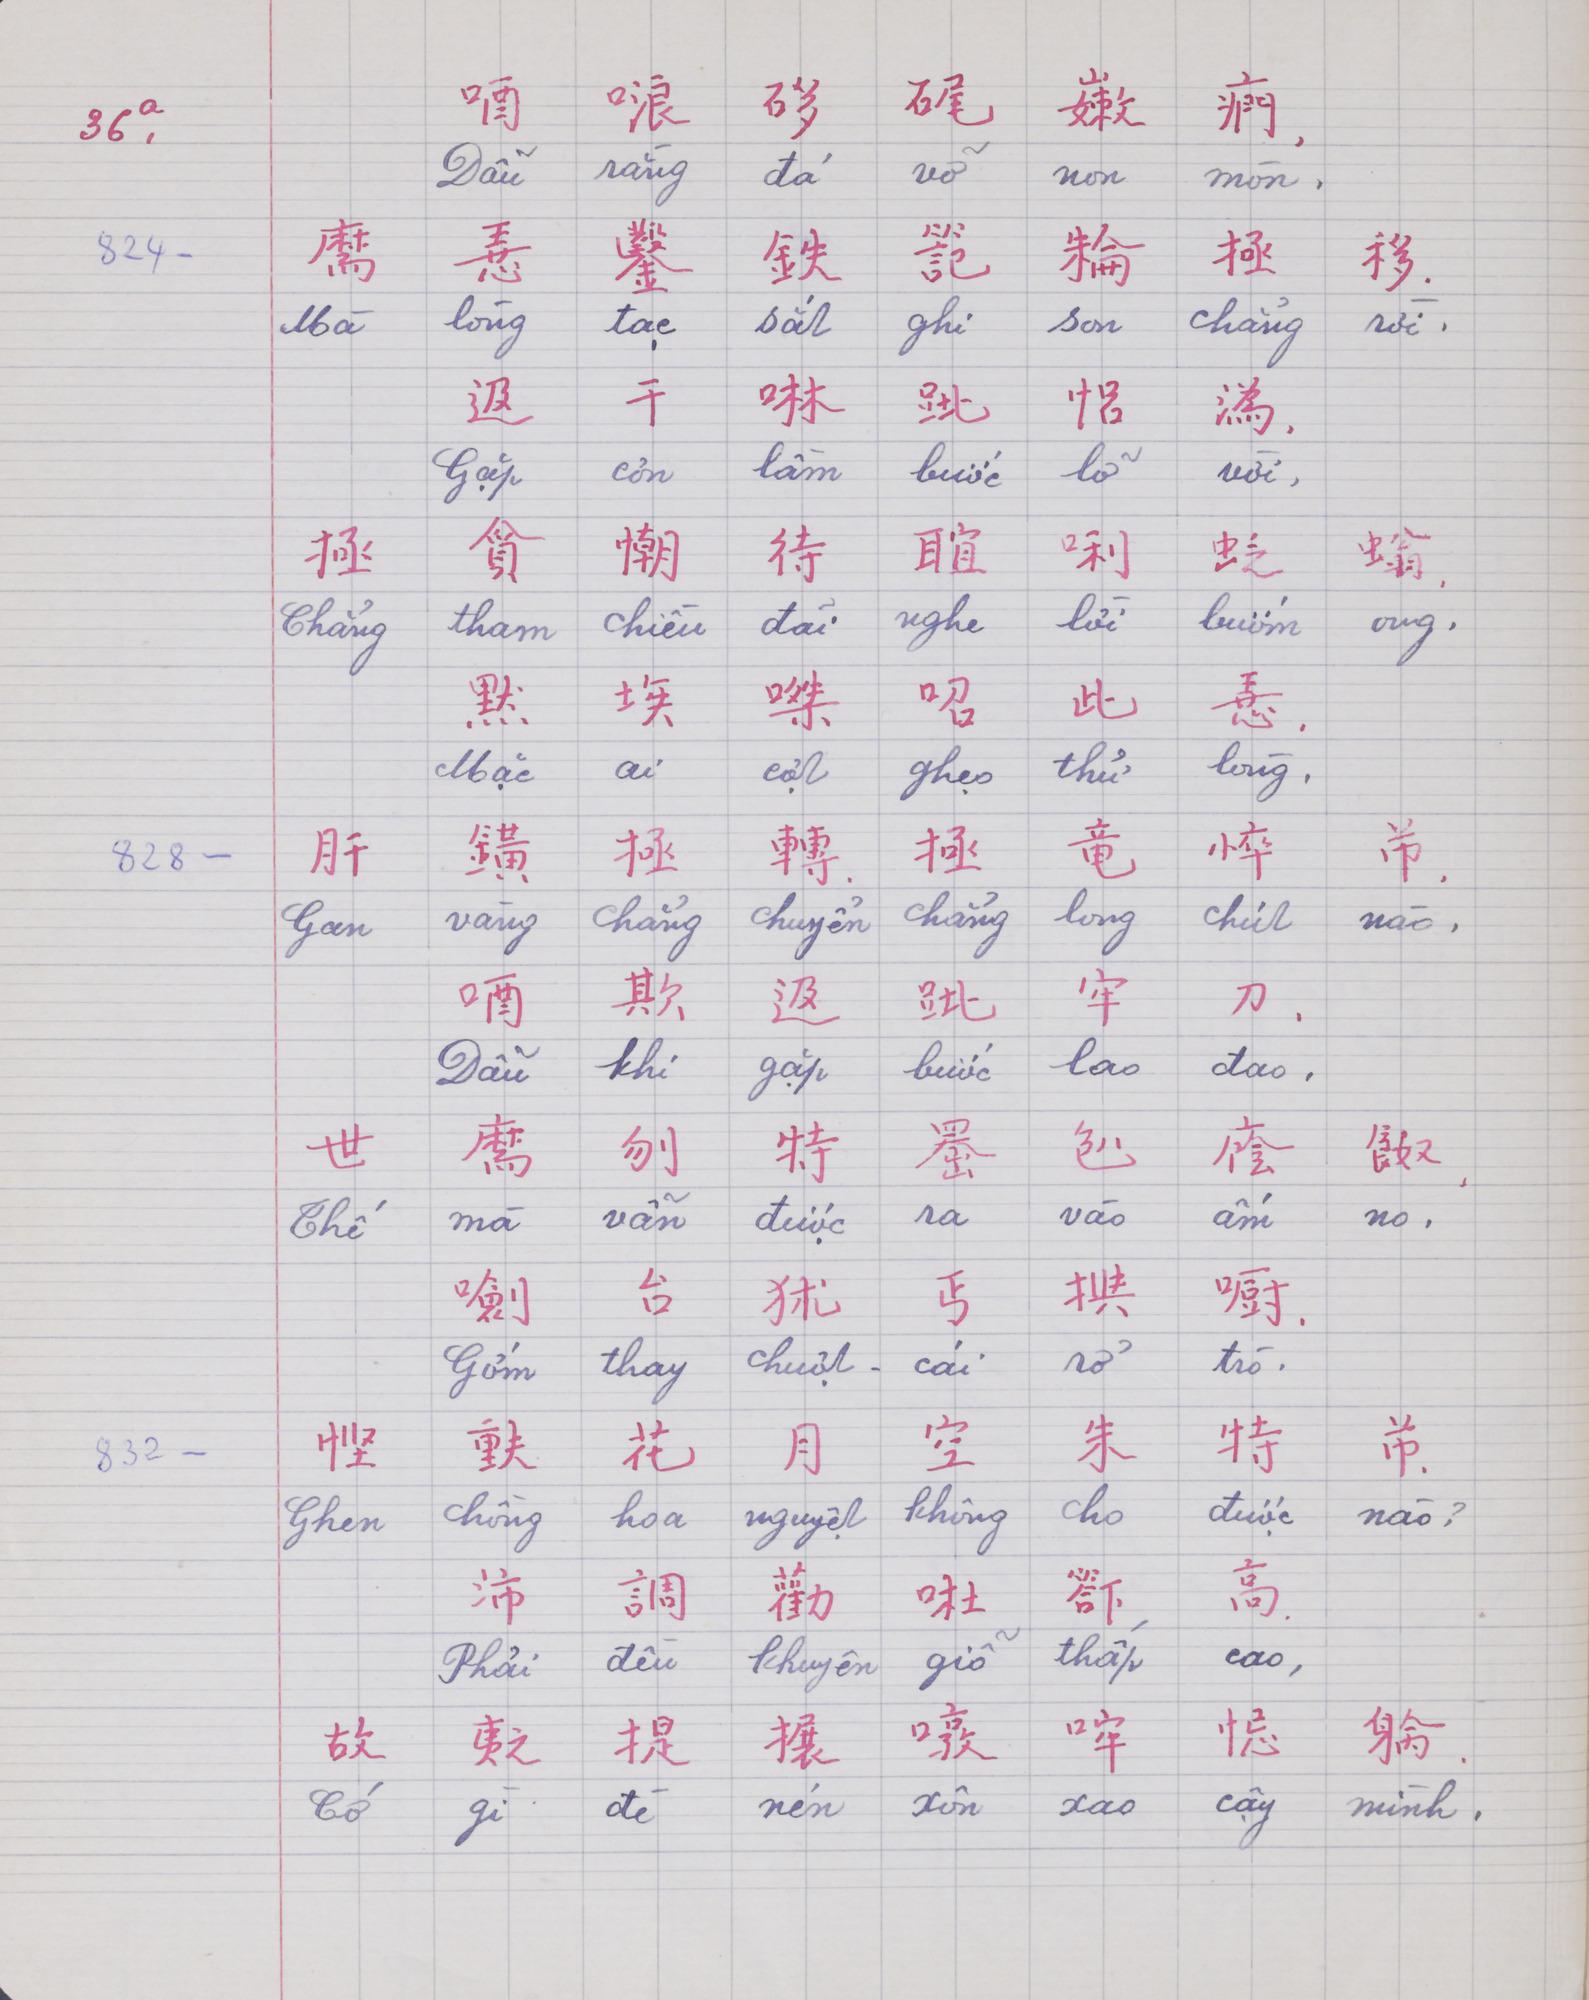 36a.
唒 哴 𥒥 𥐨 嫩 𤷱.
Dẫu rằng đá vỡ non mòn.
824-
𢚸 鑿 鉄 𥱬 極 移.
Mà lòng tạc sắt ghi son chẳng rời.
𨒺 干 啉 𨀈 㤛 溈.
Gặp cơn lầm bước lỡ vời,
極 貪 𢢅 待 𦖻 唎 𧊉 螉.
Chẳng tham chiều đãi nghe lời bướm ong.
默 埃 㗫 㕾 此 𢚸.
Mặc ai cợt ghẹo thử lòng.
828-
肝 鐄 極 轉. 極 竜 悴 芇.
Gan vàng chẳng chuyển chẳng long chút nào.
唒 欺 𨒺 𨀈 牢 刀.
Dẫu khi gặp bước lao đao.
世 刎 特 𫥨 𠓨 癊 𩛂.
Thế mà vẫn được ra vào ấm no.
噞 台 㹥 丐 㩡 㕑.
Gớm thay chuột-cái rở trò.
832-
慳 𫯳 花 月 空 朱 特 芇.
Ghen chồng hoa nguyệt không cho được nào?
沛 調 勸 𠴗 𥰊 高.
Phải đều khuyên giỗ thấp cao,
故 𡗉 提 攘 噋 㗖 忌 躺.
Cớ gì đè nén xôn xao cậy mình.